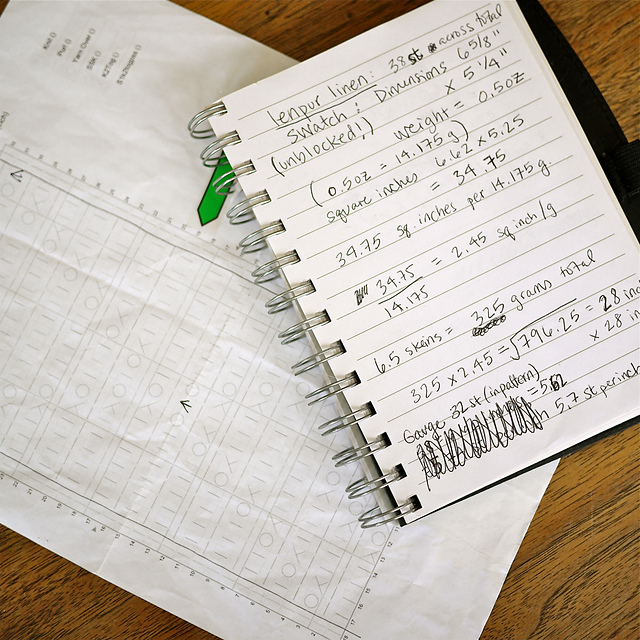 lenpur linen: 38st across total
swatch: Dimensions 6 5/8"
x 5 1/4"
(unblocked!) weight = 0.5oz
(0.5oz = 14.175g)
square inches 6.62 x 5.25
= 34.75
34.75 sq. inches per 14.175g.
34.75
14.175
= 2.45 sq inch/g
6.5 skeins = 325 grams total
325 x 2.45 = √796.25 = 28 inc
x 28 in
Gauge 32st (in pattern)
5.7 st per inch
Knit
Purl
Yarn Over
SSK
K2Tog